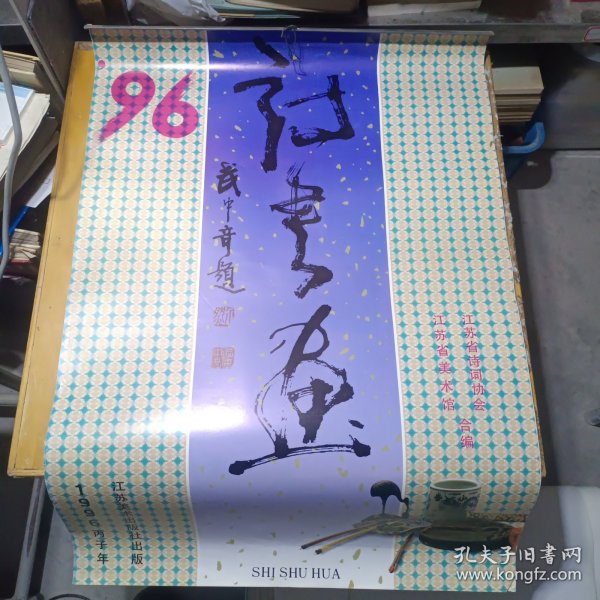 '96
诗书画
武中奇题
江苏省诗词协会
江苏省美术馆
合编
江苏美术出版社出版
1996丙子年
SHI SHU HUA
孔夫子旧书网
www.kongfz.com